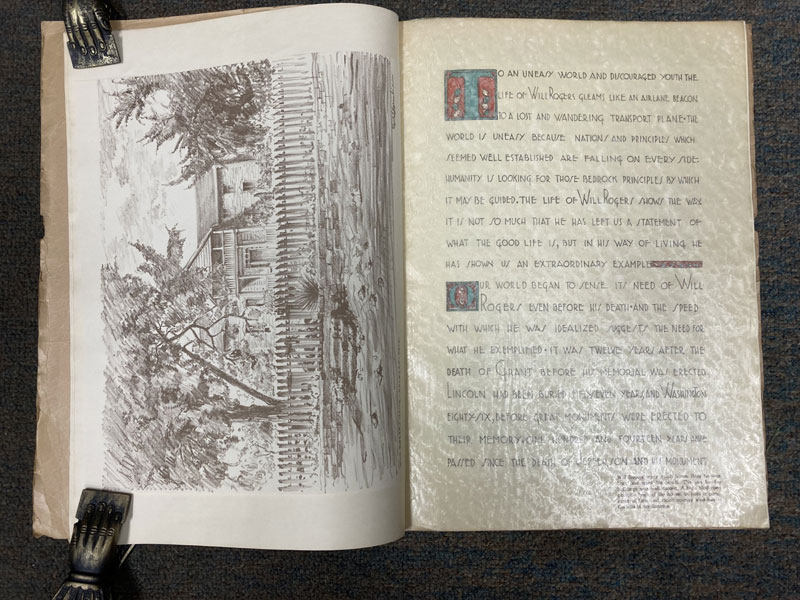 TO AN UNEASY WORLD AND DISCOURAGED YOUTH THE
LIFE OF WILL ROGERS GLEAMS LIKE AN AIRLANE BEACON
TO A LOST AND WANDERING TRANSPORT PLANE·THE
WORLD IS UNEASY BECAUSE NATIONS AND PRINCIPLES WHICH
SEEMED WELL ESTABLISHED ARE FALLING ON EVERY SIDE·
HUMANITY IS LOOKING FOR THOSE BEDROCK PRINCIPLES BY WHICH
IT MAY BE GUIDED·THE LIFE OF WILL ROGERS SHOWS THE WAY
IT IS NOT SO MUCH THAT HE HAS LEFT US A STATEMENT OF
WHAT THE GOOD LIFE IS, BUT IN HIS WAY OF LIVING HE
HAS SHOWN US AN EXTRAORDINARY EXAMPLE
OUR WORLD BEGAN TO SENSE ITS NEED OF WILL
ROGERS EVEN BEFORE HIS DEATH·AND THE SPEED
WITH WHICH HE WAS IDEALIZED SUGGESTS THE NEED FOR
WHAT HE EXEMPLIFIED·IT WAS TWELVE YEARS AFTER THE
DEATH OF GRANT BEFORE HIS MEMORIAL WAS ERECTED
LINCOLN HAD BEEN BURIED FIFTYSEVEN YEARS, AND WASHINGTON
EIGHTY-SIX, BEFORE GREAT MONUMENTS WERE ERECTED TO
THEIR MEMORY·ONE HUNDRED AND FOURTEEN YEARS HAVE
PASSED SINCE THE DEATH OF JEFFERSON AND HIS MONUMENT